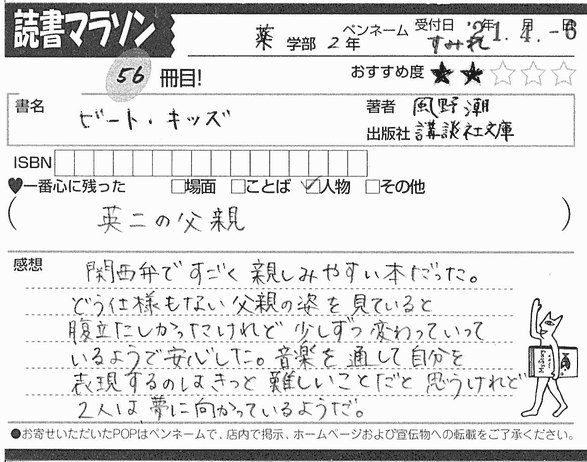 読書マラソン
薬 学部 2年
ペンネーム すみれ
受付日 '21年.4月.-6日
56 冊目!
おすすめ度 ★★☆☆☆
書名 ビート・キッズ
著者 風野潮
出版社 講談社文庫
ISBN
♥一番心に残った □場面 □ことば ☑人物 □その他
( 英二の父親 )
感想
関西弁ですごく親しみやすい本だった。
どう仕様もない父親の姿を見ていると
腹立たしかったけれど少しずつ変わっていって
いるようで安心した。音楽を通して自分を
表現するのはきっと難しいことだと思うけれど
2人は、夢に向かっているようだ。
●お寄せいただいたPOPはペンネームで、店内で掲示、ホームページおよび宣伝物への転載をご了承ください。